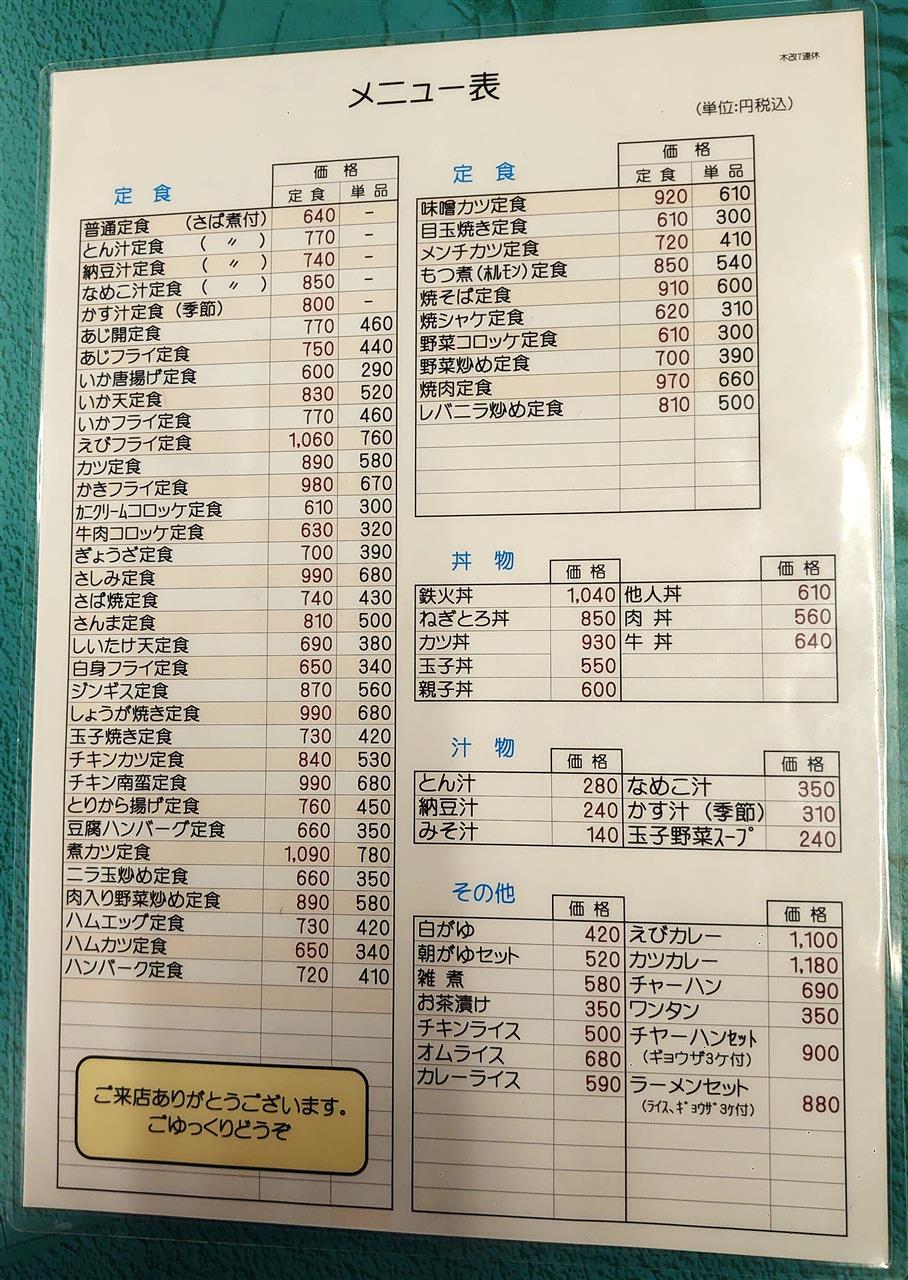 木改T連休
メニュー表
(単位:円税込)
定食 価格
定食 単品
普通定食 (さば煮付) 640 -
とん汁定食 ( 〃 ) 770 -
納豆汁定食 ( 〃 ) 740 -
なめこ汁定食 ( 〃 ) 850 -
かす汁定食 (季節) 800 -
あじ開定食 770 460
あじフライ定食 750 440
いか唐揚げ定食 600 290
いか天定食 830 520
いかフライ定食 770 460
えびフライ定食 1,060 760
カツ定食 890 580
かきフライ定食 980 670
カニクリームコロッケ定食 610 300
牛肉コロッケ定食 630 320
ぎょうざ定食 700 390
さしみ定食 990 680
さば焼定食 740 430
さんま定食 810 500
しいたけ天定食 690 380
白身フライ定食 650 340
ジンギス定食 870 560
しょうが焼き定食 990 680
玉子焼き定食 730 420
チキンカツ定食 840 530
チキン南蛮定食 990 680
とりから揚げ定食 760 450
豆腐ハンバーグ定食 660 350
煮カツ定食 1,090 780
ニラ玉炒め定食 660 350
肉入り野菜炒め定食 890 580
ハムエッグ定食 730 420
ハムカツ定食 650 340
ハンバーク定食 720 410
ご来店ありがとうございます。
ごゆっくりどうぞ
定食 価格
定食 単品
味噌カツ定食 920 610
目玉焼き定食 610 300
メンチカツ定食 720 410
もつ煮(ホルモン)定食 850 540
焼そば定食 910 600
焼シャケ定食 620 310
野菜コロッケ定食 610 300
野菜炒め定食 700 390
焼肉定食 970 660
レバニラ炒め定食 810 500
丼物 価格 価格
鉄火丼 1,040 他人丼 610
ねぎとろ丼 850 肉丼 560
カツ丼 930 牛丼 640
玉子丼 550
親子丼 600
汁物 価格 価格
とん汁 280 なめこ汁 350
納豆汁 240 かす汁 (季節) 310
みそ汁 140 玉子野菜スープ 240
その他 価格 価格
白がゆ 420 えびカレー 1,100
朝がゆセット 520 カツカレー 1,180
雑煮 580 チャーハン 690
お茶漬け 350 ワンタン 350
チキンライス 500 チヤーハンセット 900
オムライス 680 (ギョウザ3ケ付)
カレーライス 590 ラーメンセット 880
(ライス、ギョウザ3ケ付)